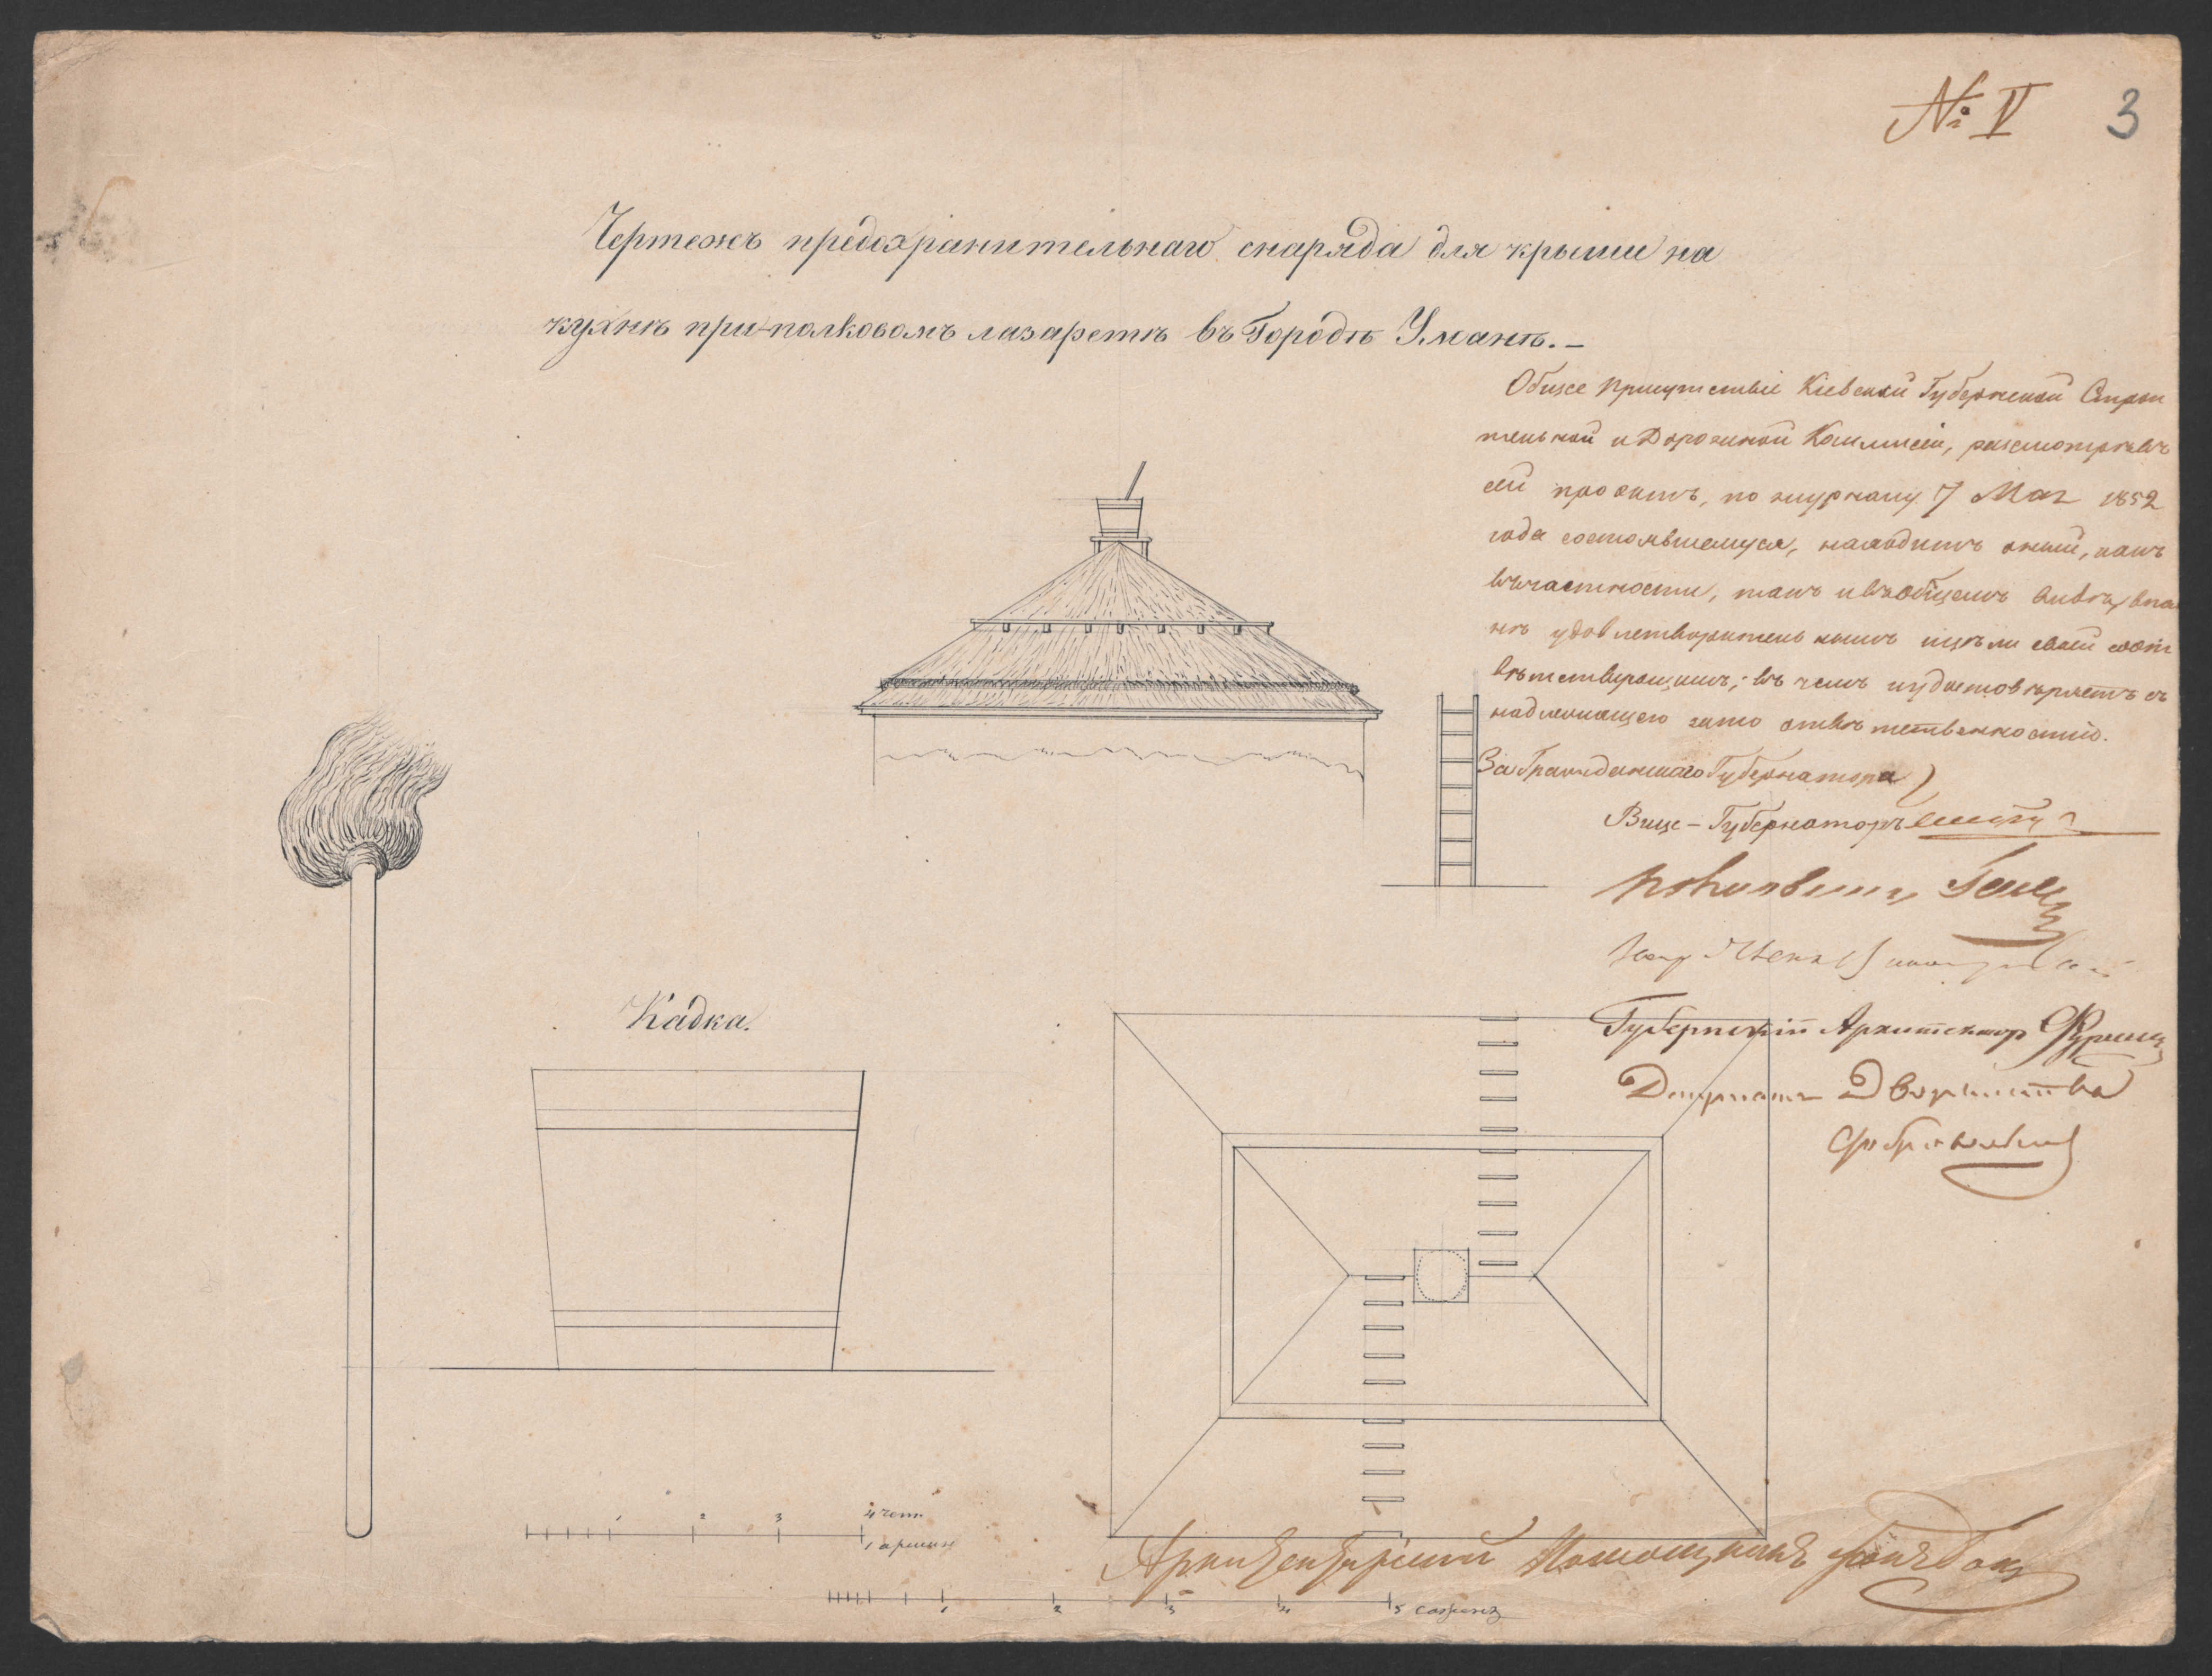 № V 3
Чертежъ предохранительнаго снаряда для крыши на
кухнѣ при полковомъ лазаретѣ въ Городѣ Уманѣ.–
Общее Присутствіе Кіевской Губернской Строи
тельной и Дорожной Коммисіи, разсмотрѣвъ
сей проэктъ, по журналу 7 Мая 1852
года состоявшемуся, находитъ оный, какъ
въ частности, такъ и въ общемъ видѣ, впол
нѣ удовлетворительнымъ и цѣли своей соот
вѣтствующимъ; въ чемъ и удостовѣряетъ съ
надлежащею за то отвѣтственностію.
За Гражданскаго Губернатора,
Вице-Губернаторъ
Губернскій Архитектор
Депутатъ Дворянства
Кадка.
1 2 3 4 четв.
1 аршинъ
Архитекторскій Помощникъ
1 2 3 4 5 сажень